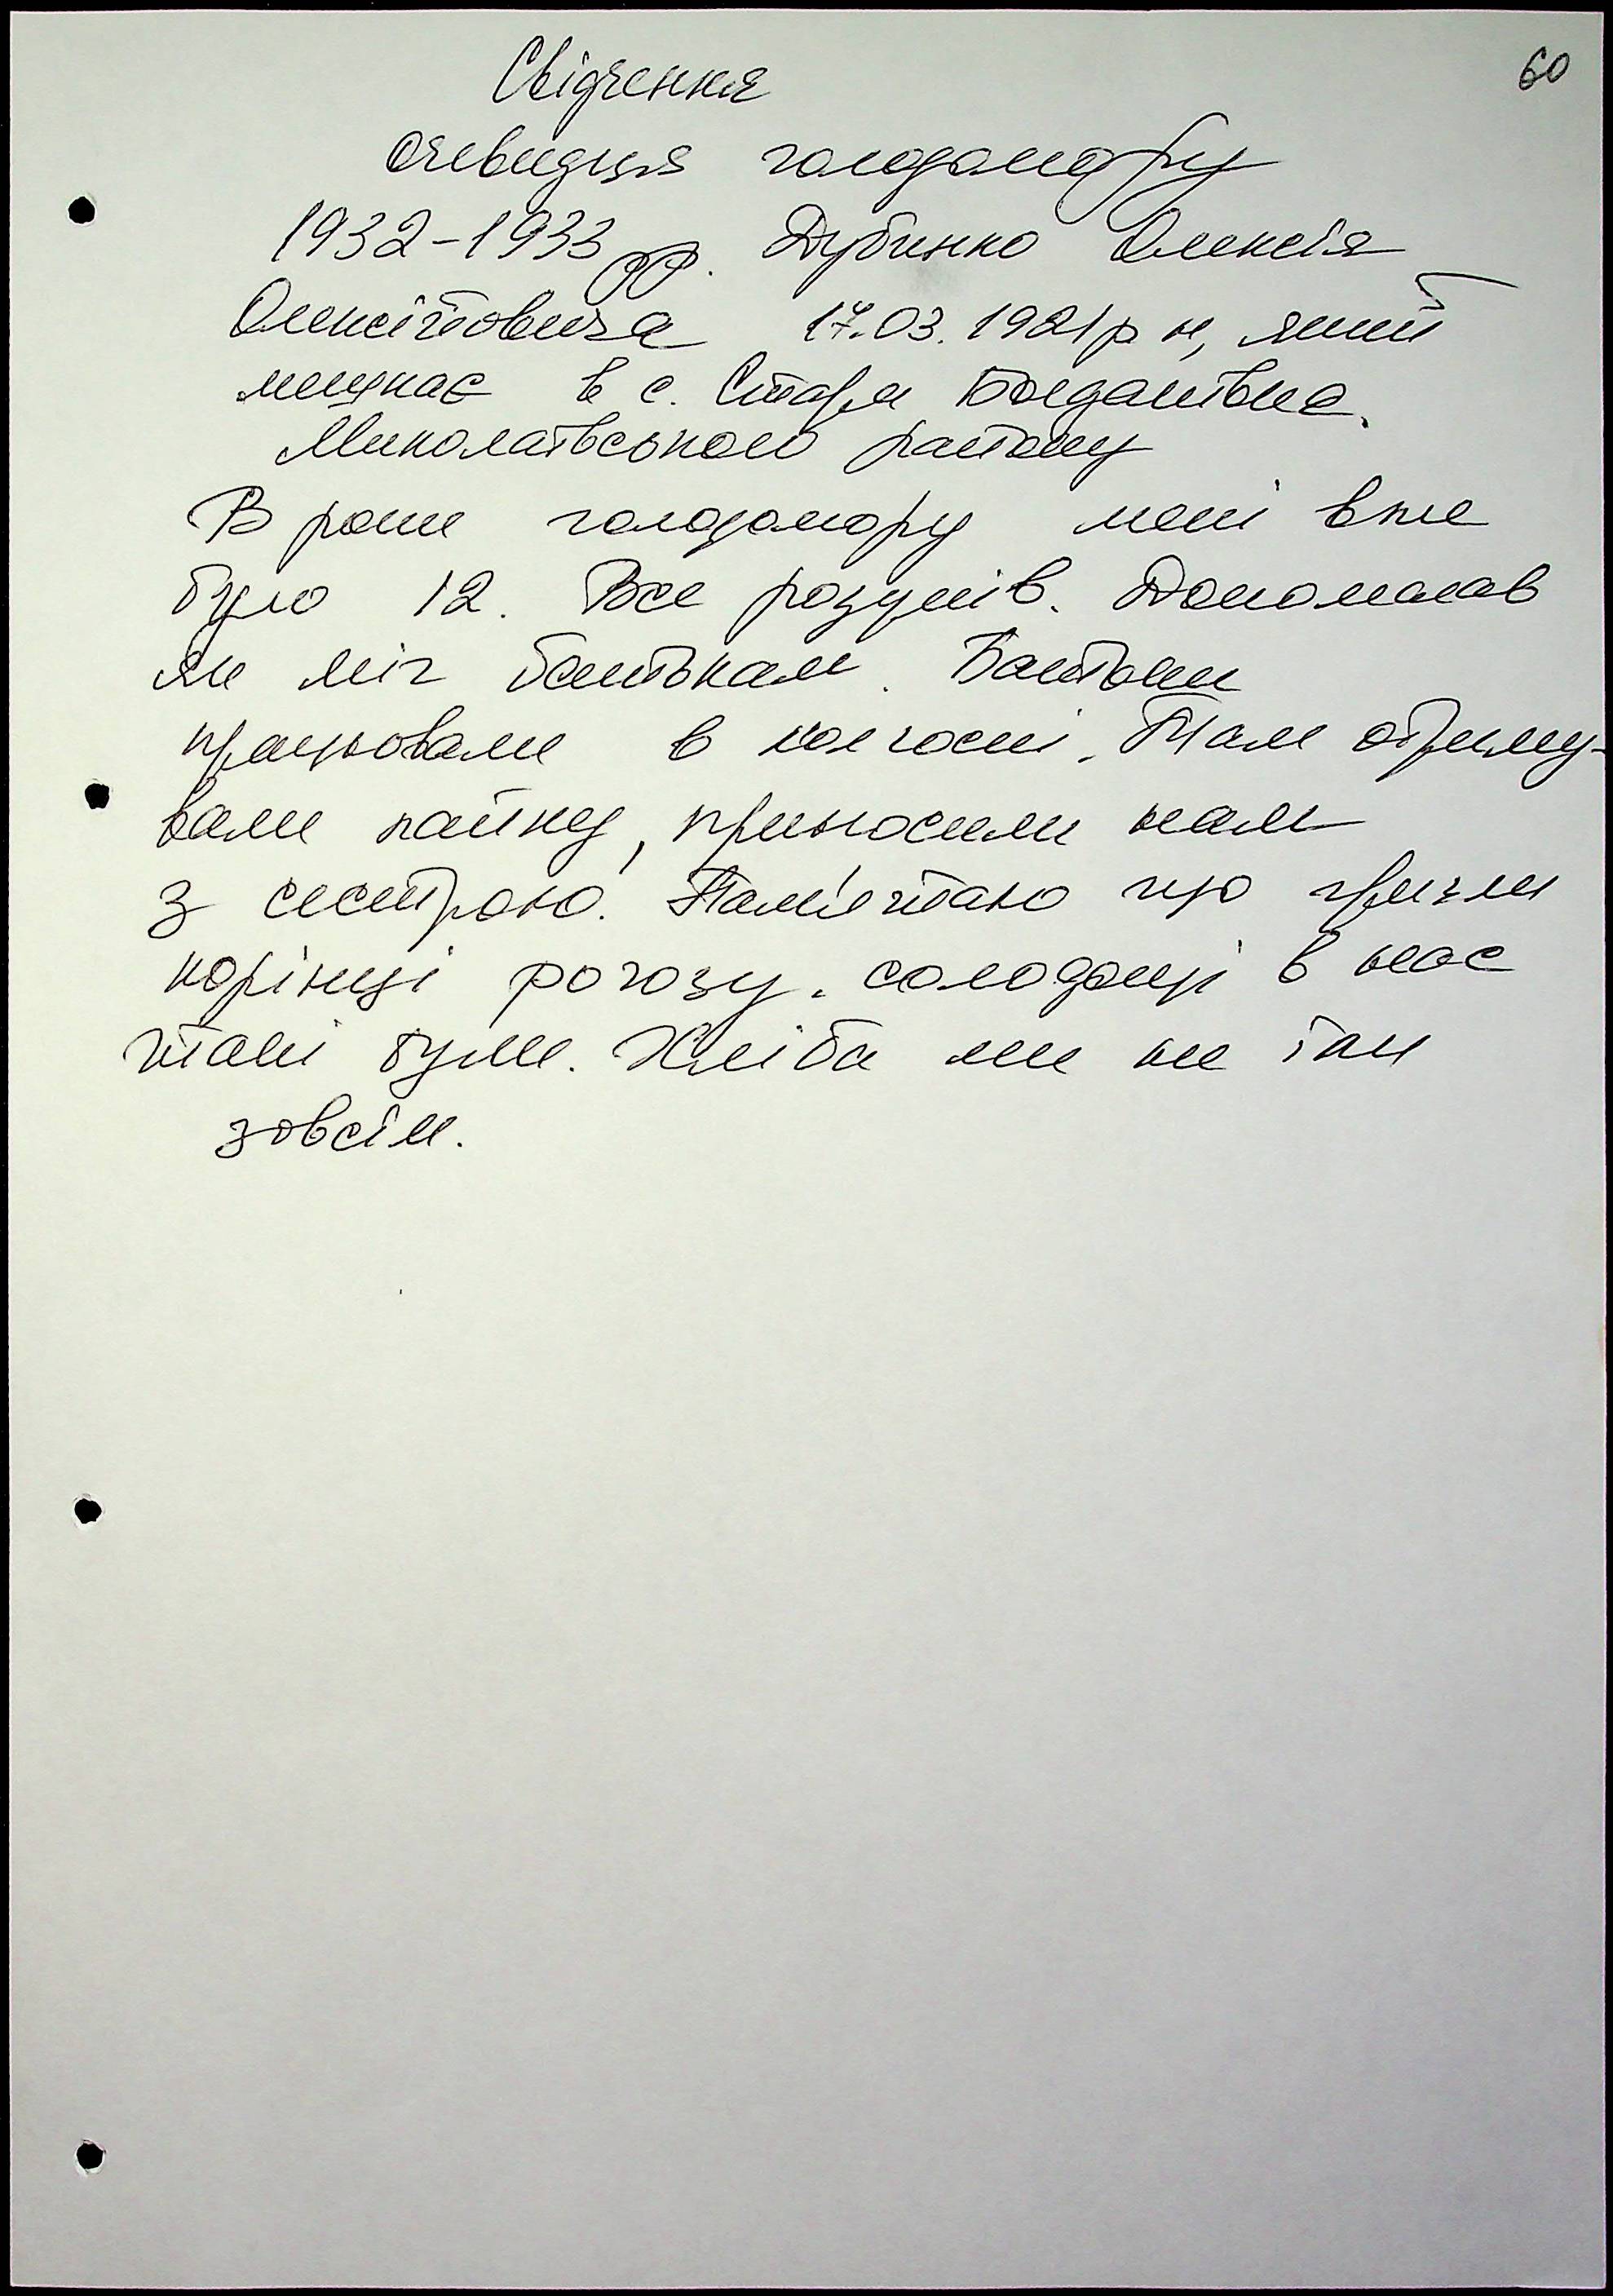 60
Свідчення
очевидця голодомору
1932-1933 рр. Дубинко Олексія
Олексійовича 17.03.1921 р н, який
мешкає в с. Стара Богданівка,
Миколаївського району
В роки голодомору мені вже
було 12. Все розумів. Допомагав
як міг батькам. Батьки
працювали в колгоспі. Там отриму-
вали пайку, приносили нам
з сестрою. Пам'ятаю що гризли
корінці рогозу. солодощі в нас
такі були. Хліба ми не їли
зовсім.